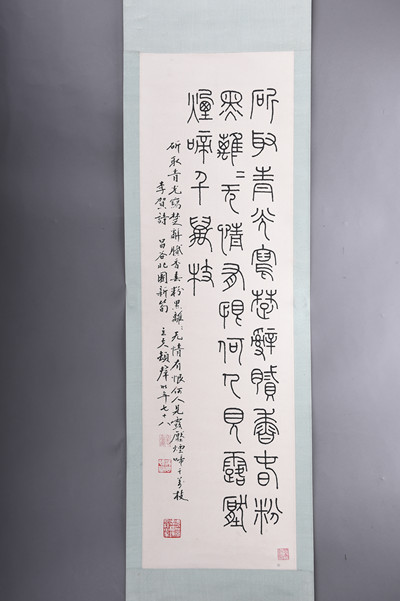 斫取青光寫楚辭膩香春粉
黑離〻无情有恨何人見露壓
煙啼千萬枝
斫取青光寫楚辭膩香春粉黑離〻无情有恨何人見露壓煙啼千万枝
李賀詩 昌谷北園新筍 年七十八